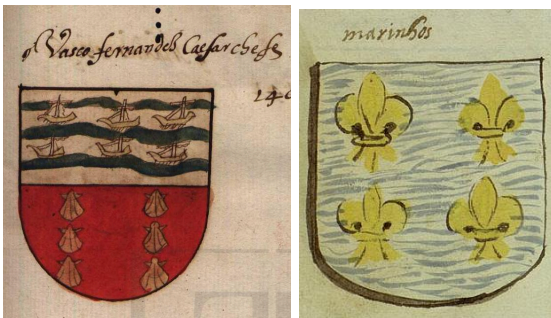 Vasco fernandes Caesar chefe
marinhos